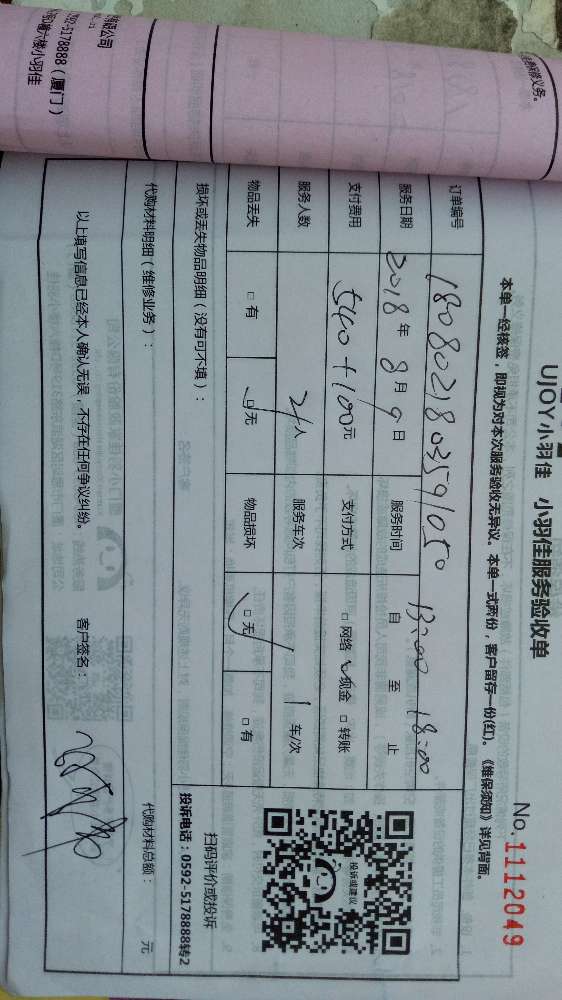 UJOY小羽佳 小羽佳服务验收单
No.1112049
本单一经核签，即视为对本次服务验收无异议。本单一式两份，客户留存一份(红)。《维保须知》详见背面。
订单编号 1808021803591050
服务日期 2018年8月9日 服务时间 自13:00至18:00止
支付费用 540+100元 支付方式 □网络 ☑现金 □转账
服务人数 2人 服务车次 1车/次
物品丢失 □有 ☑无 物品损坏 ☑无 □有
损坏或丢失物品明细（没有可不填）：
代购材料明细（维修业务）：
代购材料总额： 元
以上填写信息已经本人确认无误，不存在任何争议纠纷。 客户签名：
投诉或建议
扫码评价或投诉
投诉电话：0592-5178888转2
限公司
92-5178888（厦门）
六楼小羽佳
修义务。